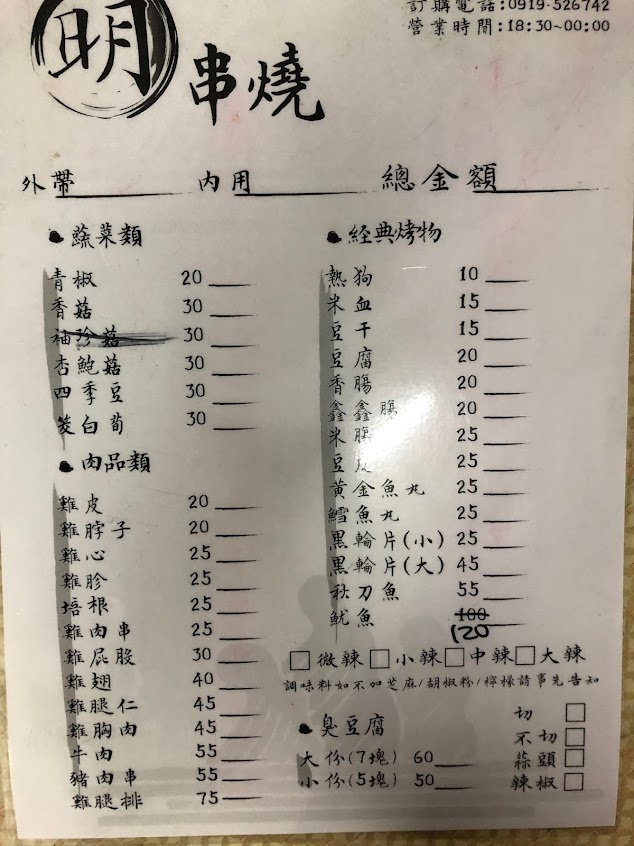 明
串燒
訂購電話:0919-526742
營業時間:18:30~00:00
外帶 內用 總金額
●蔬菜類
青椒 20
香菇 30
袖珍菇 30
杏鮑菇 30
四季豆 30
筊白荀 30
●肉品類
雞皮 20
雞脖子 20
雞心 25
雞胗 25
培根 25
雞肉串 25
雞屁股 30
雞翅 40
雞腿仁 45
雞胸肉 45
牛肉 55
豬肉串 55
雞腿排 75
●經典烤物
熱狗 10
米血 15
豆干 15
豆腐 20
香腸 20
鑫鑫腸 20
米腸 25
豆皮 25
黃金魚丸 25
鱈魚丸 25
黑輪片(小) 25
黑輪片(大) 45
秋刀魚 55
魷魚 100
120
□微辣□小辣□中辣□大辣
調味料如不加芝麻/胡椒粉/檸檬請事先告知
●臭豆腐
大份(7塊) 60
小份(5塊) 50
切 □
不切 □
蒜頭 □
辣椒 □